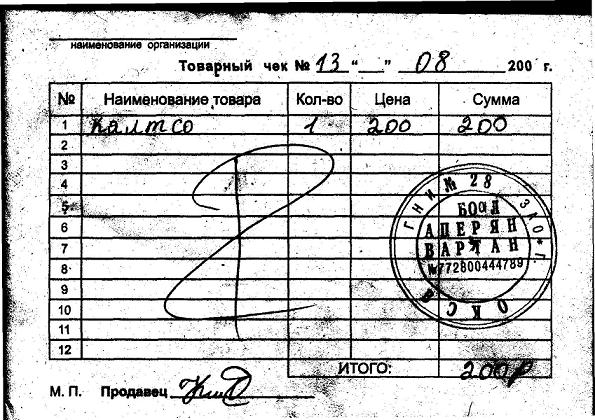 наименование организации
Товарный чек № 13 “__” 08 200 г.
№ Наименование товара Кол-во Цена Сумма
1 Калтсо 1 200 200
2
3
4
5
6
7
8
9
10
11
12
ГНИ № 28 ЗАО * Г. МОСКВА
БОЮЛ
АПЕРЯН
ВАРТАН
№772800444789
ИТОГО: 200р
М. П. Продавец